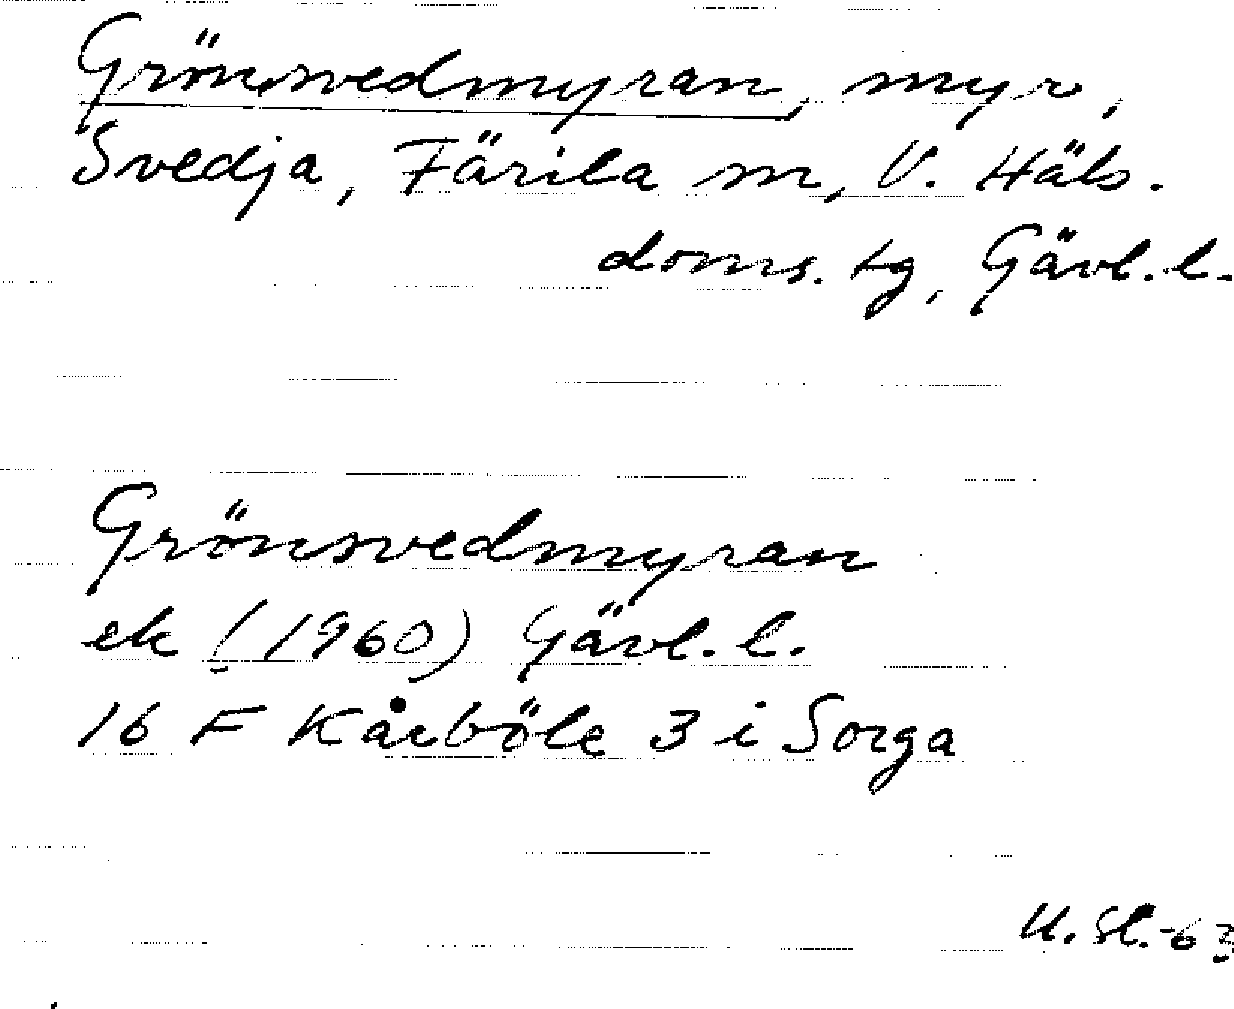 Grönsvedmyran, myr,
Svedja, Färila sn, V. Häls.
doms. tg, Gävl. l.
Grönsvedmyran
ek (1960) Gävl. l.
16 F Kårböle 3 i Sorga
U. Sl. -63